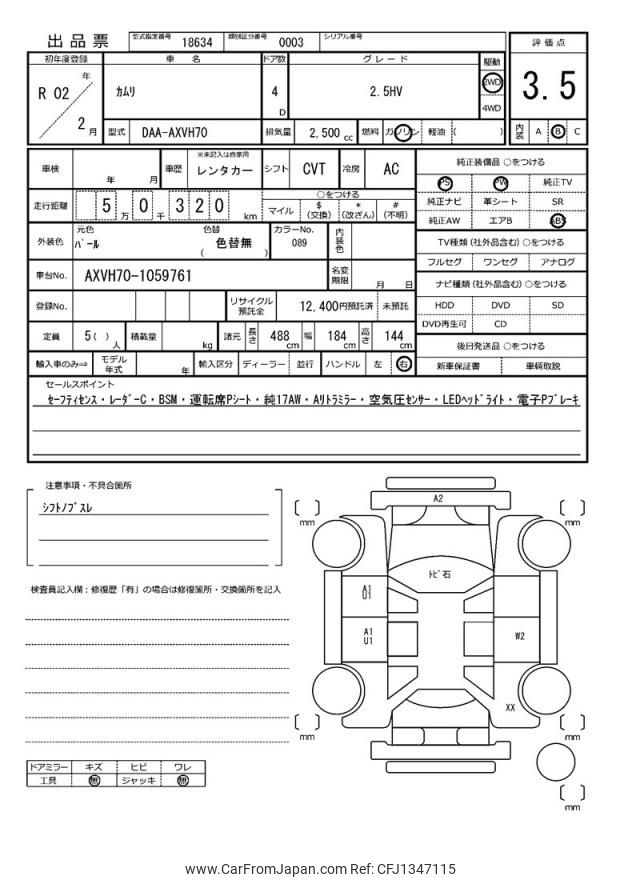 出品票 型式指定番号 18634 類別区分番号 0003 シリアル番号
評価点
3.5
内装 A B C
初年度登録 車名 ドア数 グレード 駆動
R 02 年 2 月 カムリ 4 D 2.5HV 2WD 4WD
型式 DAA-AXVH70 排気量 2,500 cc 燃料 ガソリン 軽油 ( )
車検 年 月 車歴 ※未記入は自家用 レンタカー シフト CVT 冷房 AC
走行距離 5 万 0 千 3 2 0 km ○をつける
マイル $(交換) *(改ざん) #(不明)
外装色 元色 パール 色替 色替無 ( ) カラーNo. 089 内装色
車台No. AXVH70-1059761 名変期限 月 日
登録No. リサイクル預託金 12,400円預託済 未預託
定員 5( ) 人 積載量 kg 諸元 長さ 488 cm 幅 184 cm 高さ 144 cm
輸入車のみ⇒ モデル年式 年 輸入区分 ディーラー 並行 ハンドル 左 右
純正装備品 ○をつける
PS PW 純正TV
純正ナビ 革シート SR
純正AW エアB ABS
TV種類 (社外品含む) ○をつける
フルセグ ワンセグ アナログ
ナビ種類 (社外品含む) ○をつける
HDD DVD SD
DVD再生可 CD
後日発送品 ○をつける
新車保証書 車輌取説
セールスポイント
セーフティセンス・レーダーC・BSM・運転席Pシート・純17AW・Aリトラミラー・空気圧センサー・LEDヘッドライト・電子Pブレーキ
注意事項・不具合箇所
シフトノブスレ
検査員記入欄：修復歴「有」の場合は修復箇所・交換箇所を記入
ドアミラー キズ ヒビ ワレ
工具 無 ジャッキ 無
A2
[ ] mm
[ ] mm
トビ石
A1
U1
A1
U1
W2
XX
[ ] mm
[ ] mm
[ ] mm
www.CarFromJapan.com Ref: CFJ1347115